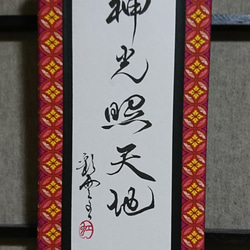 神光照天地